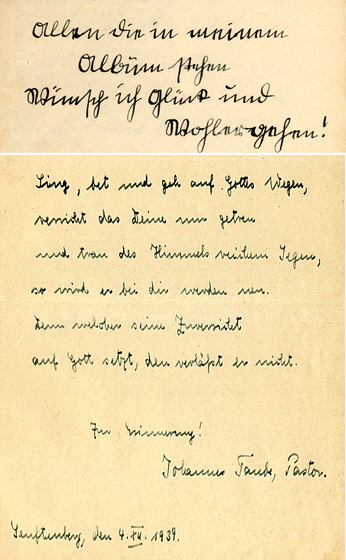 Allen die in meinem
Album stehen
Wünsch ich Glück und
Wohlergehen!
Sing, bet und geh auf Gottes Wegen,
verricht das Deine nur getreu
und trau des Himmels reichem Segen,
so wird er bei dir werden neu.
Denn welcher seine Zuversicht
auf Gott setzt, den verläßt er nicht.
Zur Erinnerung!
Johannes Taube, Pastor.
Senftenberg, den 4. 1939.